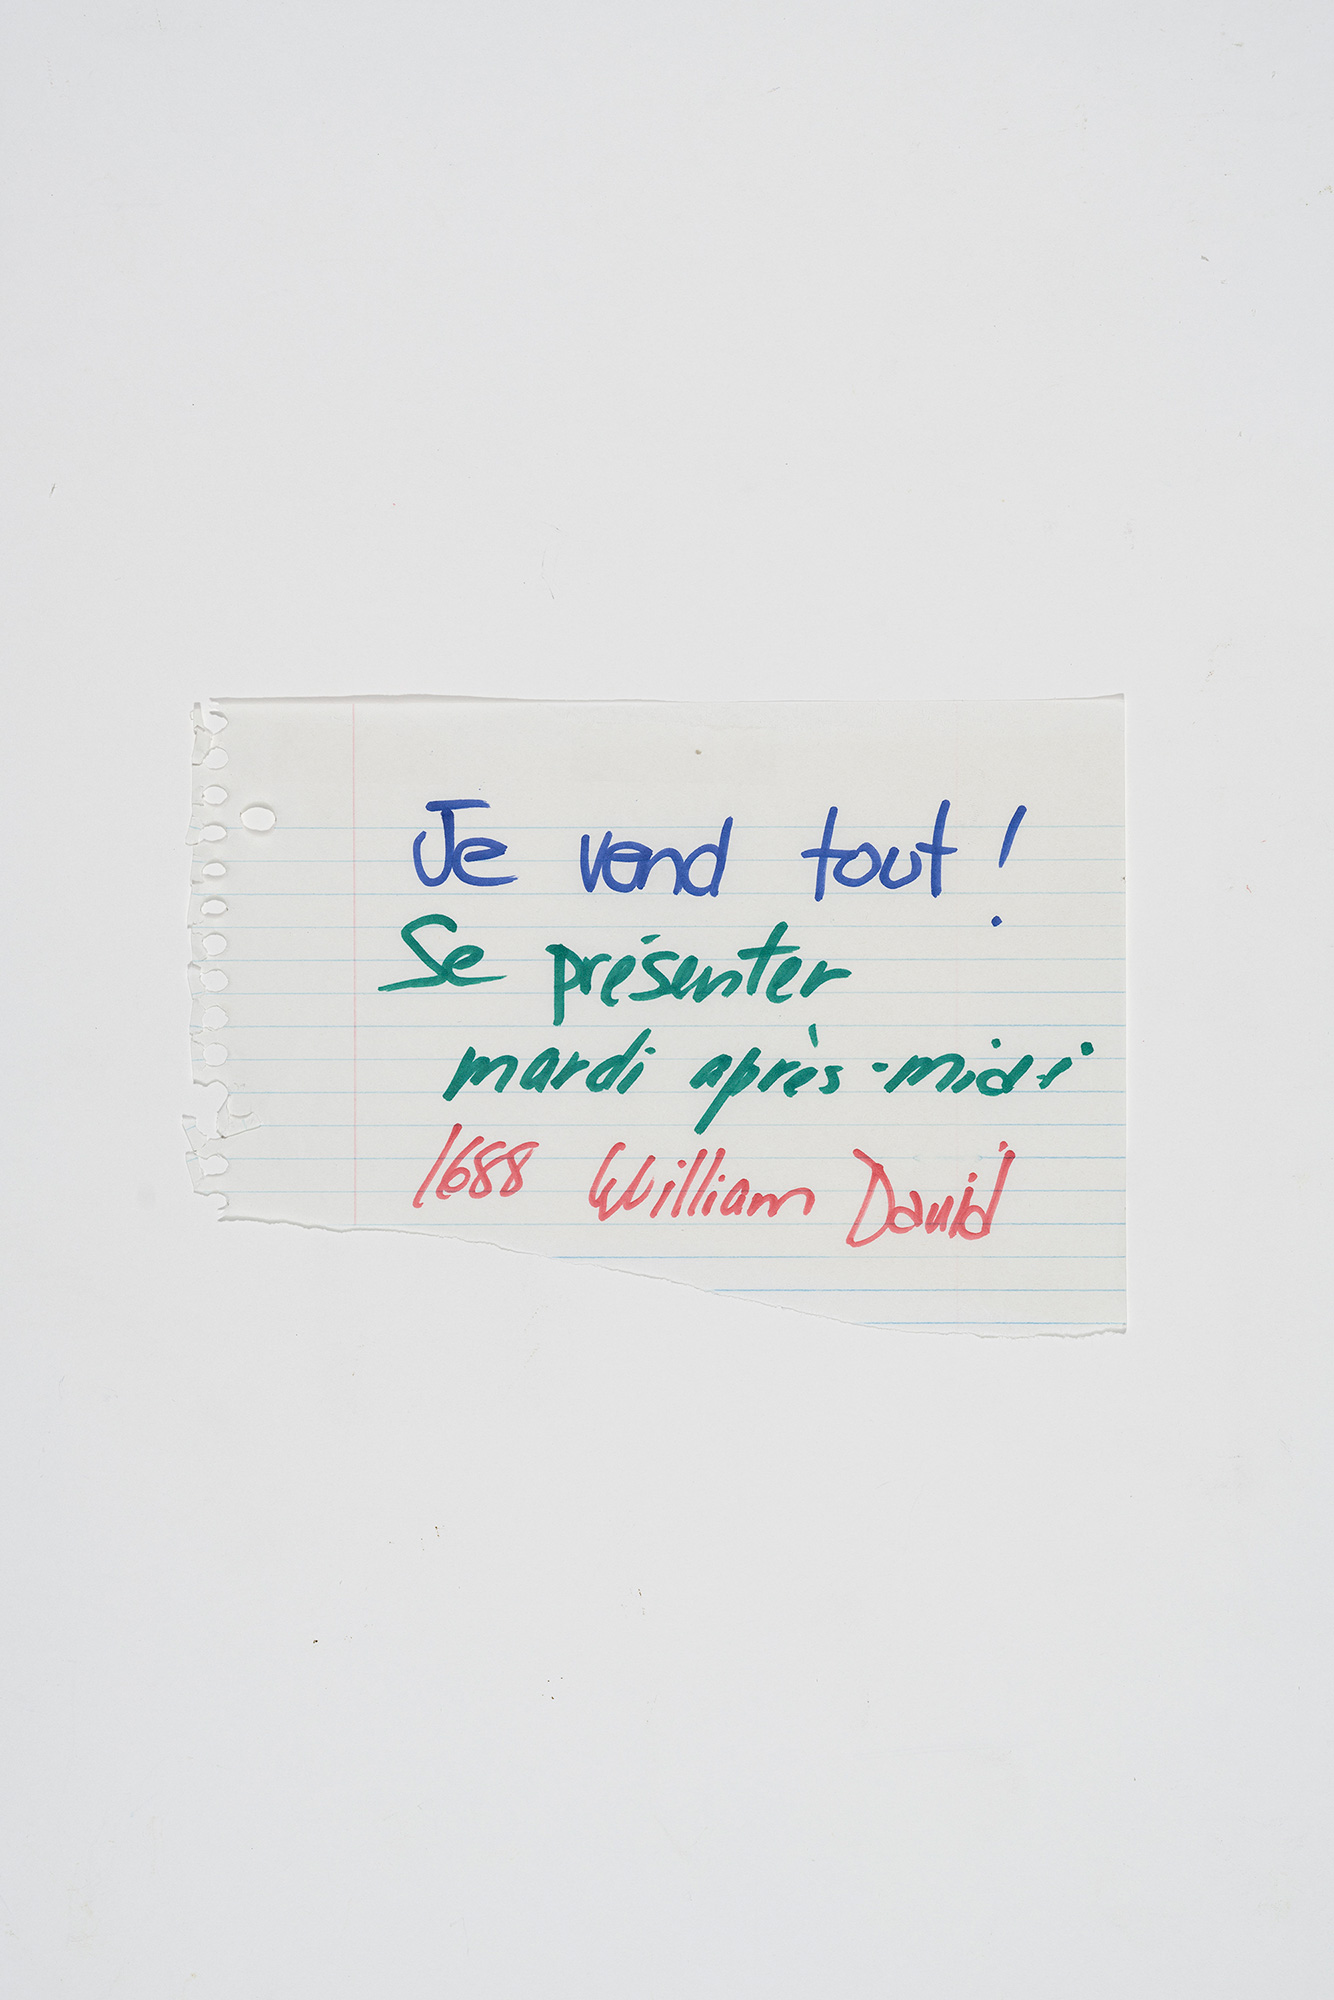 Je vend tout !
Se présenter
mardi après-midi
1688 William David